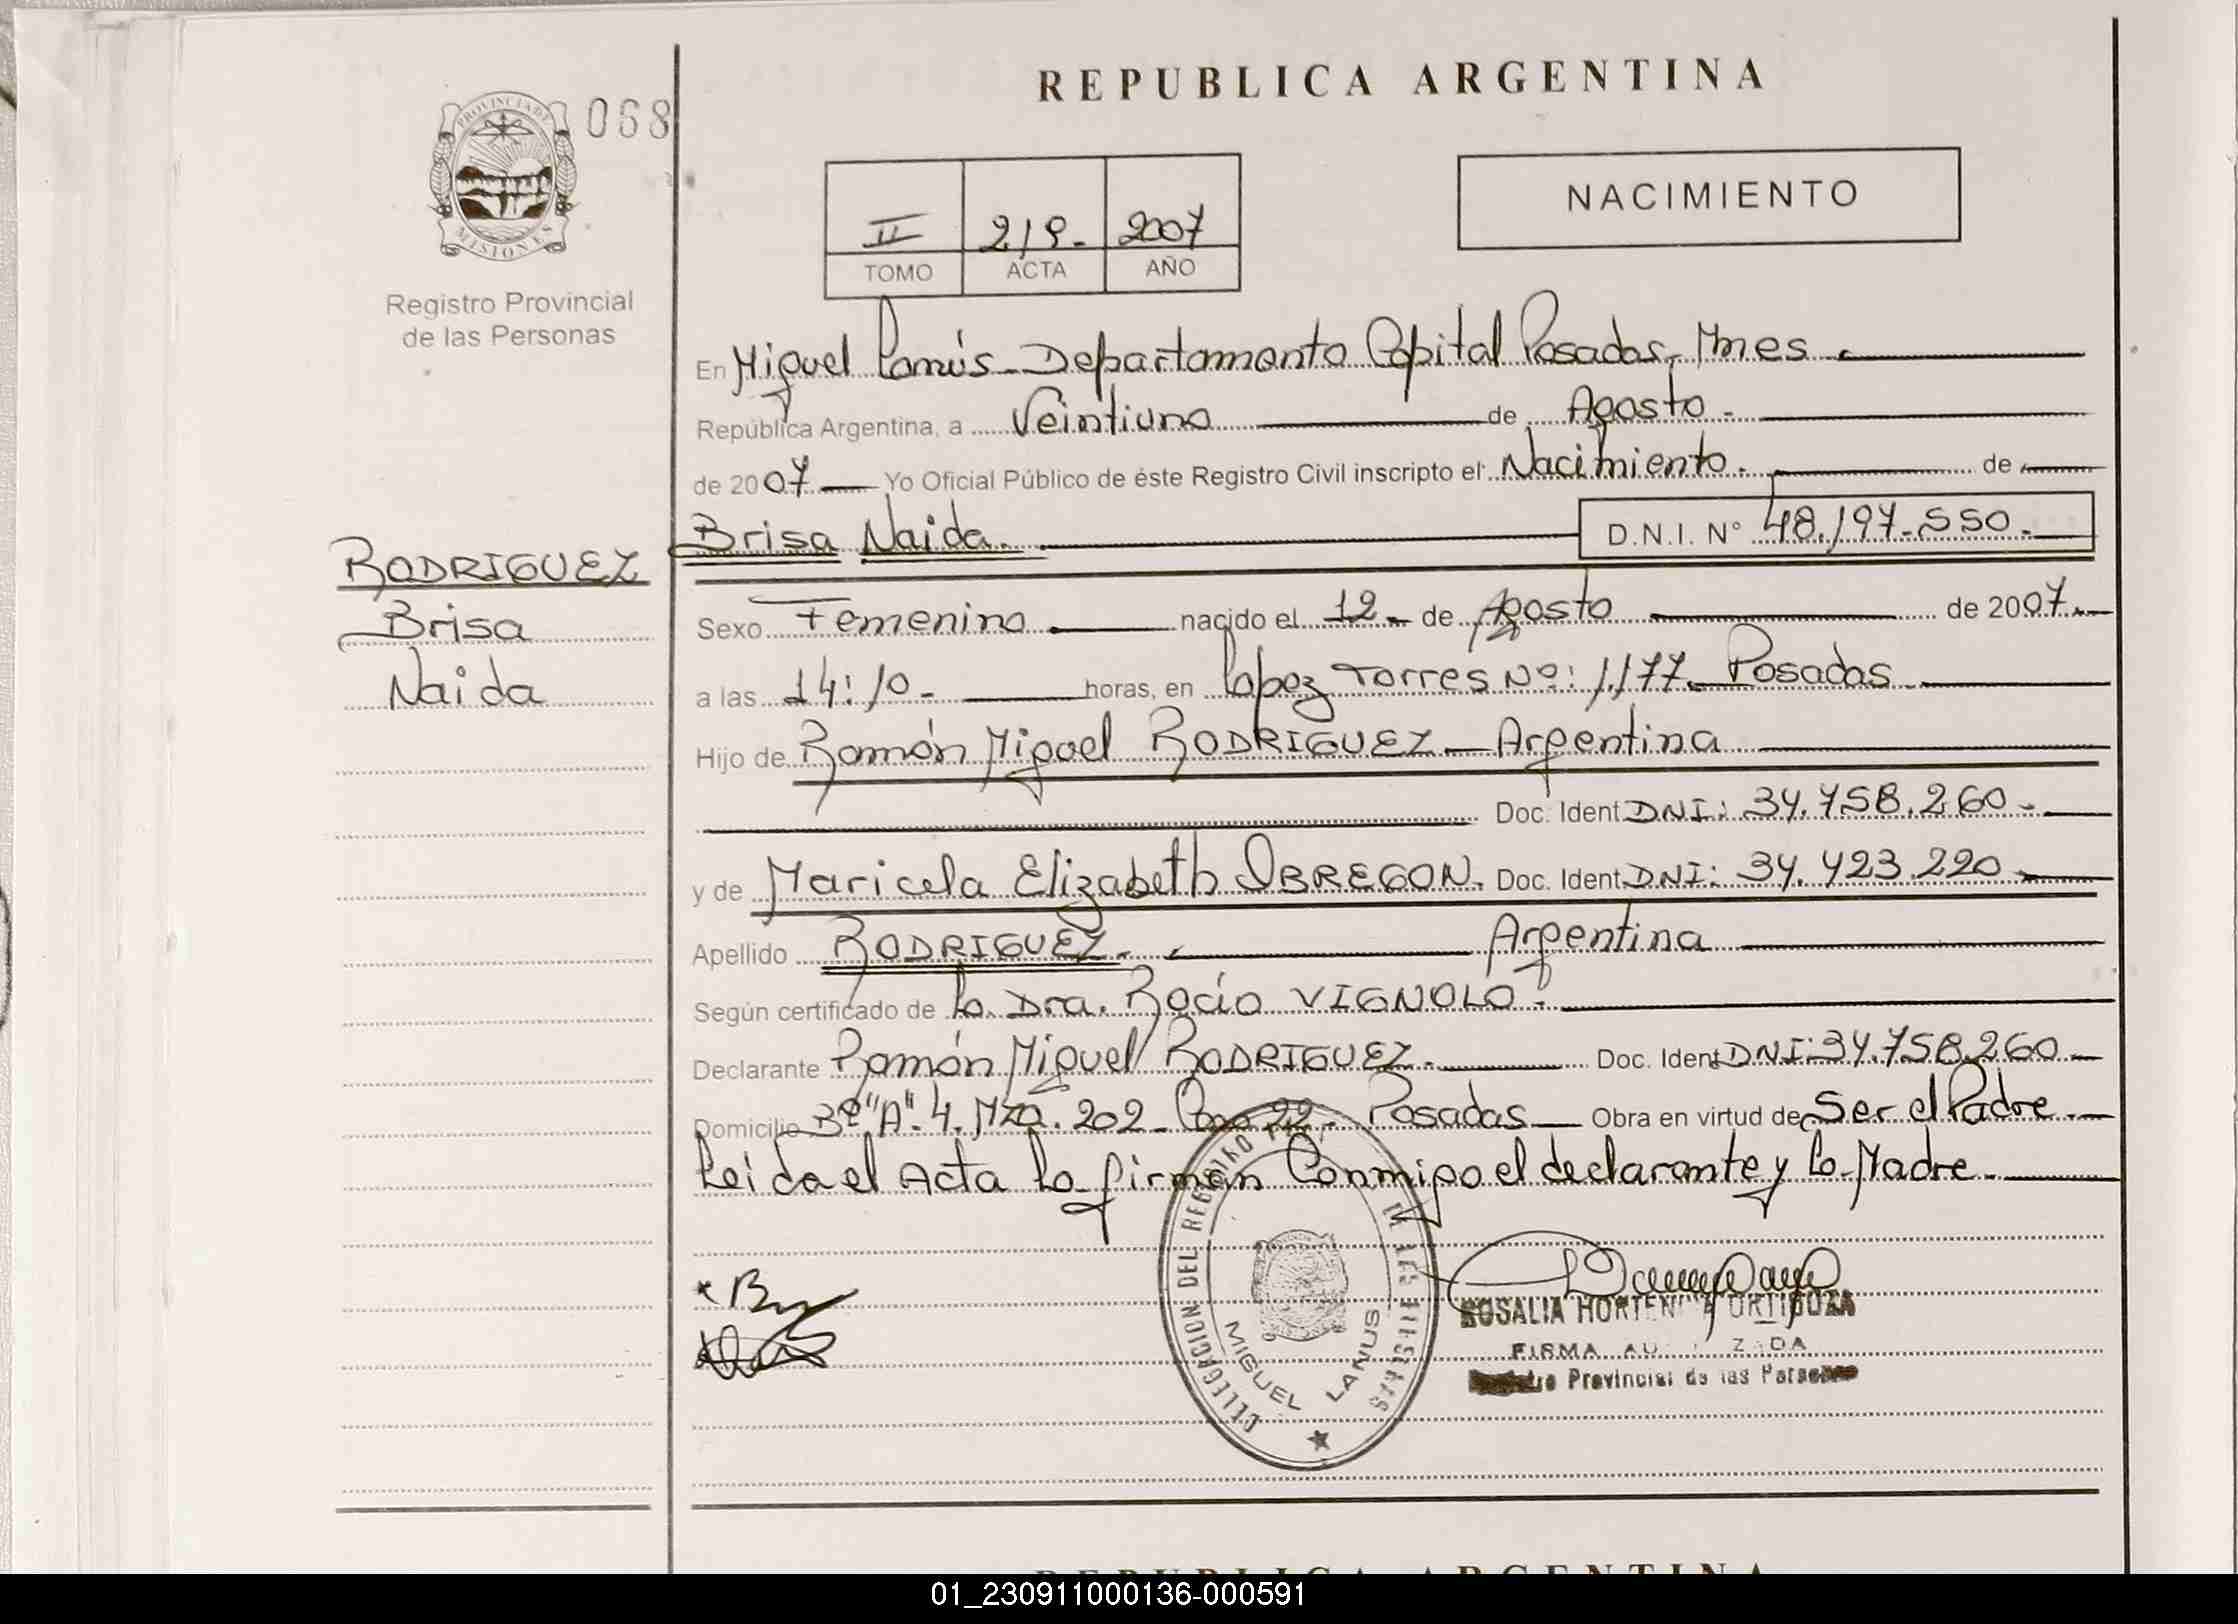 REPUBLICA ARGENTINA
PROVINCIA DE
MISIONES
068
Registro Provincial
de las Personas
NACIMIENTO
II 219- 2007
TOMO ACTA AÑO
En Miguel Lanús - Departamento Capital Posadas, Mnes
República Argentina, a Veintiuno de Agosto -
de 2007 Yo Oficial Público de éste Registro Civil inscripto el Nacimiento. de
Brisa Naida. D.N.I. N° 48.197-550-
RODRIGUEZ
Brisa
Naida
Sexo Femenino nacido el 12- de Agosto de 2007
a las 14:10- horas, en Lopez Torres Nº: 1177- Posadas
Hijo de Ramón Miguel RODRIGUEZ - Argentina
Doc. Ident DNI: 34.758.260-
y de Maricela Elizabeth OBREGON. Doc. Ident DNI: 34.423.220
Apellido RODRIGUEZ - Argentina
Según certificado de la Dra. Rocío VIGNOLO -
Declarante Ramón Miguel RODRIGUEZ - Doc. Ident DNI: 34.758.260
Domicilio Bº "A" 4. Mza. 202 - Casa 22 - Posadas Obra en virtud de Ser el Padre
Leida el Acta la firman Conmigo el declarante y la Madre
DELEGACION DEL REGISTRO DE LAS PERSONAS
MIGUEL LANUS
ROSALIA HORTENCIA ORTIGOZA
FIRMA AUTORIZADA
Registro Provincial de las Personas
REPUBLICA ARGENTINA
01_230911000136-000591